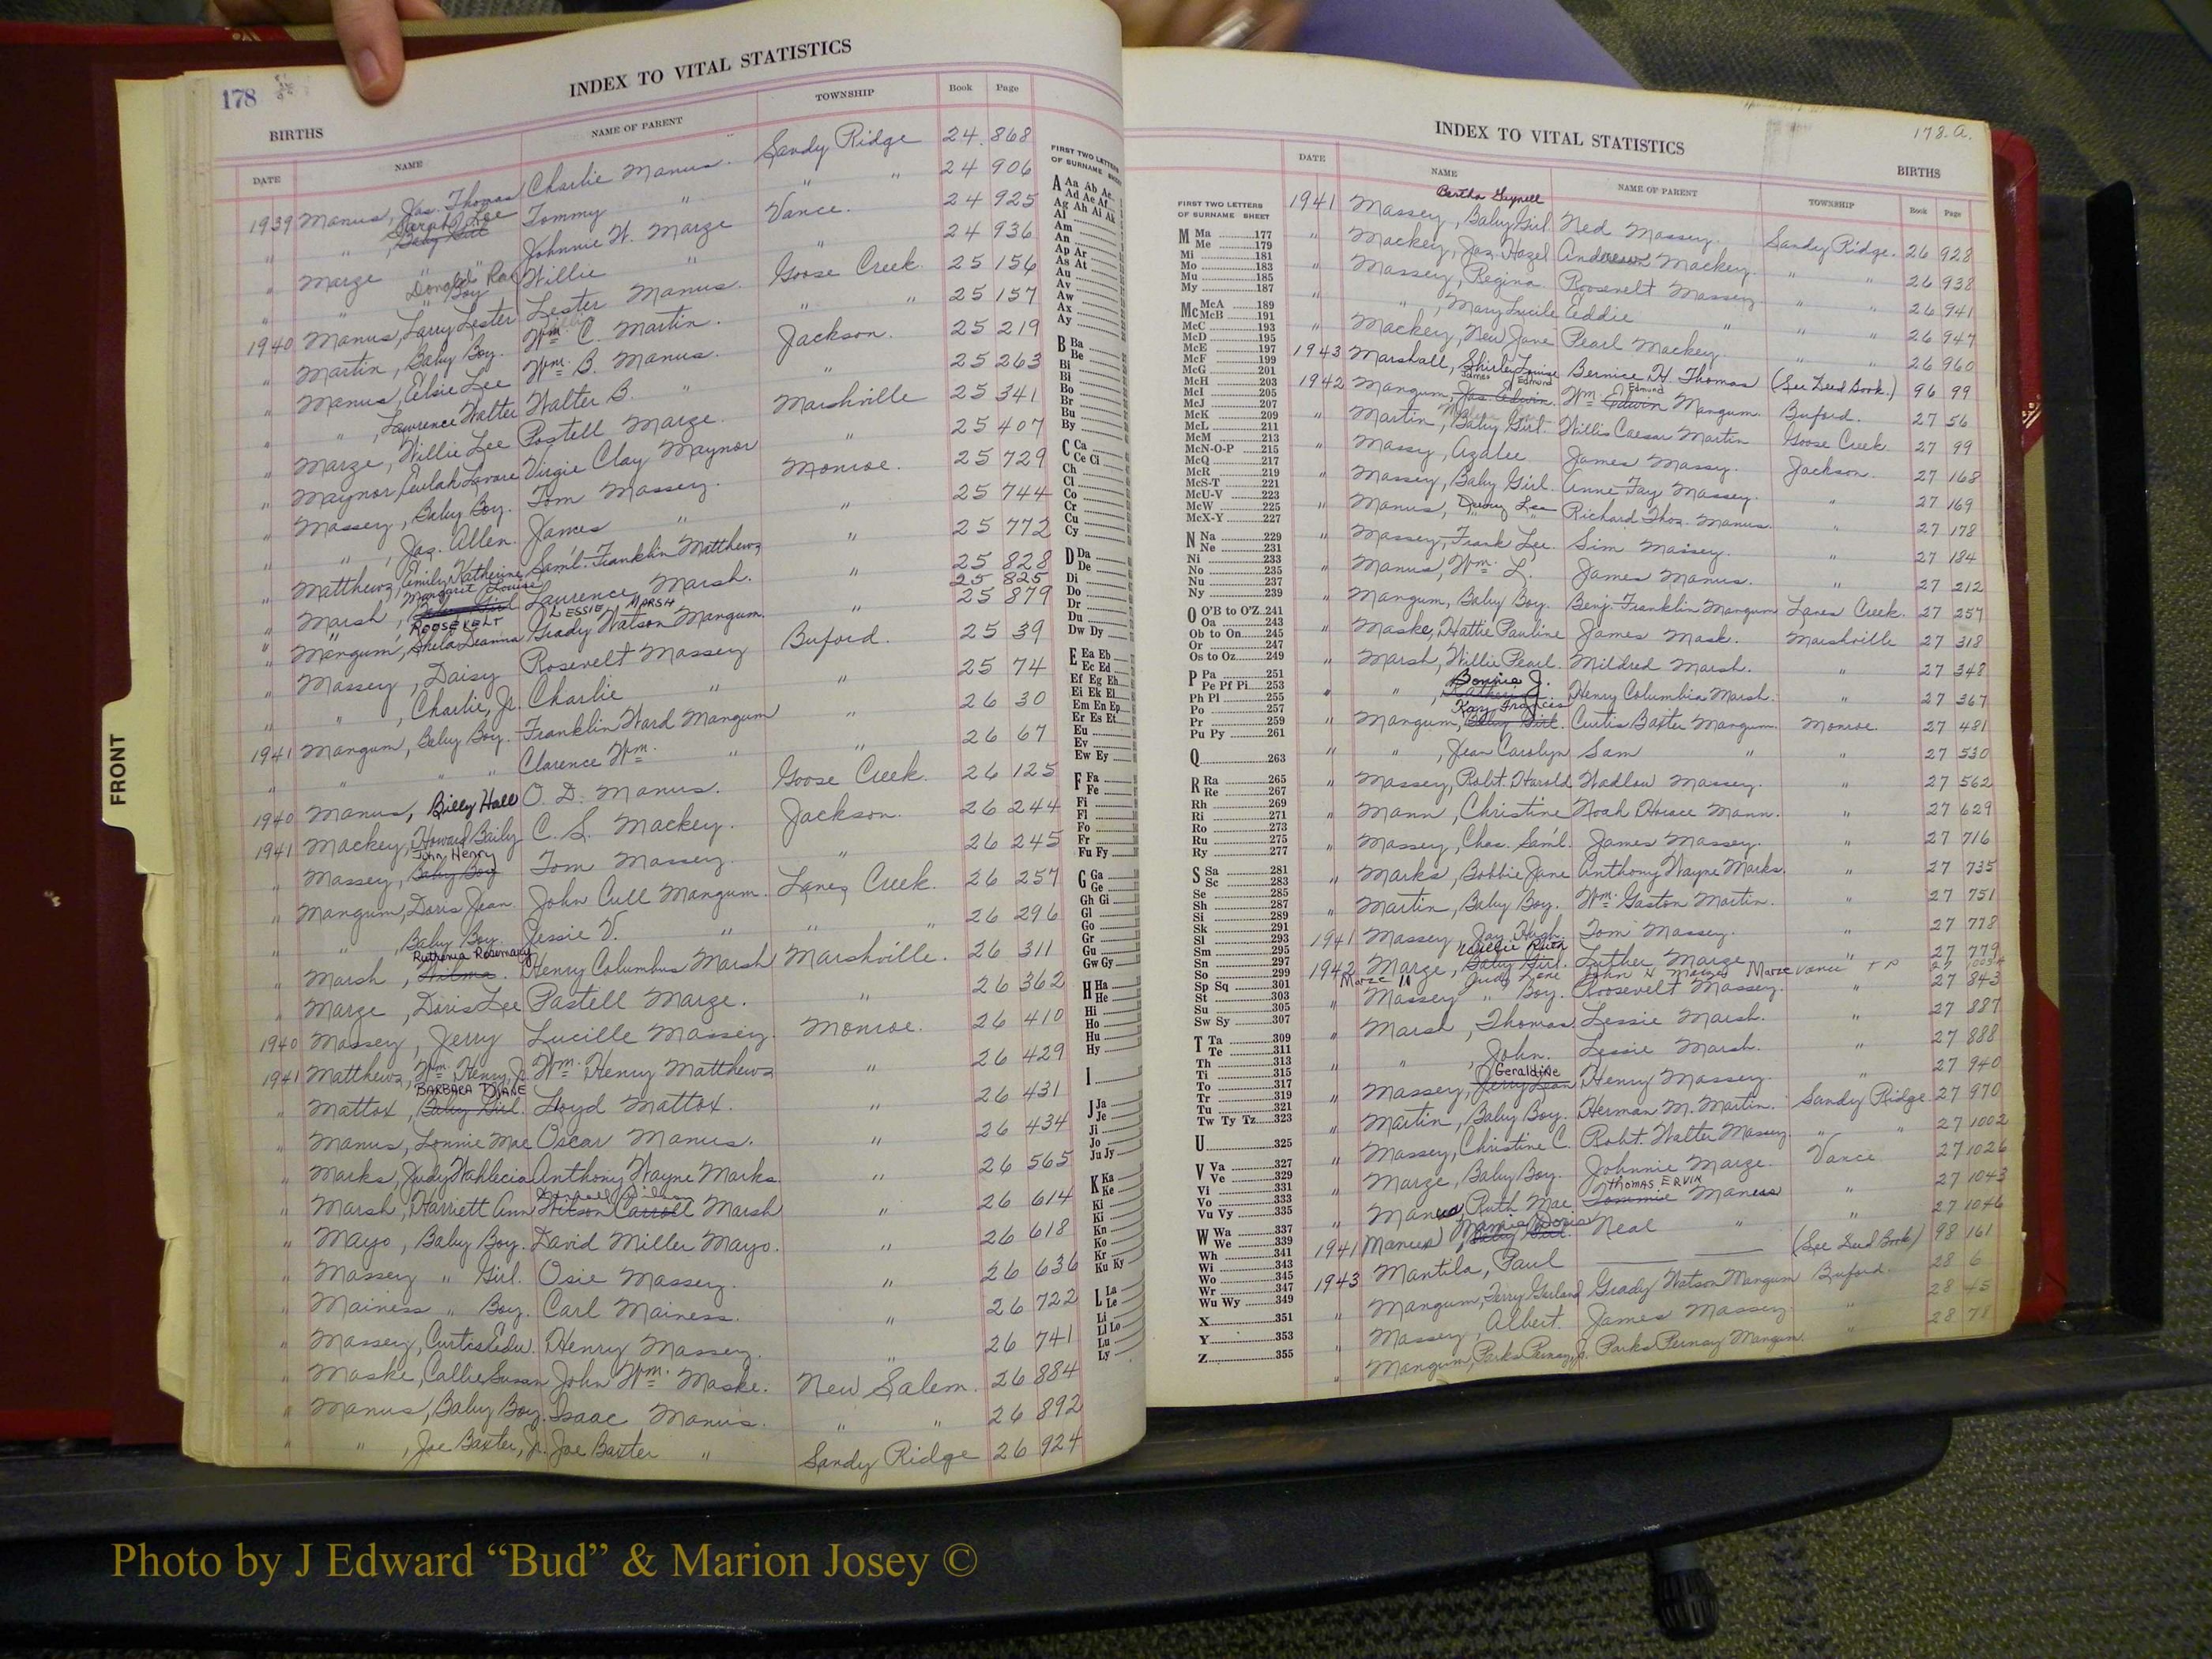 178
INDEX TO VITAL STATISTICS
BIRTHS
DATE NAME NAME OF PARENT TOWNSHIP Book Page
1939 Manus, Jas. Thomas Charlie Manus. Sandy Ridge 24 868
Sarah Lee
" " , Baby Girl Tommy " " " 24 906
" Marze Johnnie W. Marze Vance. 24 925
Donald Ray
" " " Boy Willie " " 24 936
1940 Manus, Larry Lester Lester Manus. Goose Creek. 25 156
" Martin, Baby Boy. Wm. C. Martin. " " 25 157
" Manus, Elsie Lee Wm. B. Manus. Jackson. 25 219
" " , Lawrence Walter Walter B. " " 25 263
" Marze, Willie Lee Postell Marze. Marshville 25 341
" Maynor, Eulah Lavare Virgie Clay Maynor " 25 407
" Massey, Baby Boy. Tom Massey. Monroe. 25 729
" " , Jas. Allen. James " " 25 744
" Matthews, Emily Katherine Saml. Franklin Matthews " 25 772
Margaret Louise
" Marsh, Baby Girl Lawrence Marsh. " 25 828
" " ROOSEVELT LESSIE MARSH 25 825
" Mangum, Shela Deanna Grady Watson Mangum. " 25 879
" Massey, Daisy Roosevelt Massey Buford. 25 39
" " , Charlie, Jr. Charlie " " 25 74
1941 Mangum, Baby Boy. Franklin Ward Mangum " 26 30
" " " " Clarence Wm. " " 26 67
1940 Manus, Billy Hall O. D. Manus. Goose Creek. 26 125
1941 Mackey, Howard Baily C. S. Mackey. Jackson. 26 244
John Henry
" Massey, Baby Boy Tom Massey. " 26 245
" Mangum, Doris Jean John Cull Mangum. Lanes Creek. 26 257
" " , Baby Boy. Jessie V. " " " 26 296
Ruthenia Rosemary
" Marsh, Wilma. Henry Columbus Marsh Marshville. 26 311
" Marze, Doris Lee Pastell Marze. " 26 362
1940 Massey, Jerry Lucille Massey. Monroe. 26 410
1941 Matthews, Wm. Henry, Jr. Wm. Henry Matthews " 26 429
BARBARA DIANE
" Mattox, Baby Girl. Lloyd Mattox. " 26 431
" Manus, Lonnie Mae Oscar Manus. " 26 434
" Marks, Judy Wahlecia Anthony Wayne Marks. " 26 565
" Marsh, Harriett Ann Watson Carroll Marsh " 26 614
" Mayo, Baby Boy. David Miller Mayo. " 26 618
" Massey " Girl. Osie Massey. " 26 636
" Mainess " Boy. Carl Mainess. " 26 722
" Massey, Curtis Edw. Henry Massey. " 26 741
" Maske, Callie Susan John Wm. Maske. New Salem. 26 884
" Manus, Baby Boy. Isaac Manus. " " 26 892
" " , Joe Baxter, Jr. Joe Baxter " Sandy Ridge 26 924
FIRST TWO LETTERS
OF SURNAME SHEET
A Aa Ab Ac
Ad Ae Af
Ag Ah Ai Ak
Al
Am
An
Ap Ar
As At
Au
Av
Aw
Ax
Ay
B Ba
Be
Bi
Bl
Bo
Br
Bu
By
C Ca
Ce Ci
Ch
Cl
Co
Cr
Cu
Cy
D Da
De
Di
Do
Dr
Du
Dw Dy
E Ea Eb
Ec Ed
Ef Eg Eh
Ei Ek El
Em En Ep
Er Es Et
Eu
Ev
Ew Ey
F Fa
Fe
Fi
Fl
Fo
Fr
Fu Fy
G Ga
Ge
Gh Gi
Gl
Go
Gr
Gu
Gw Gy
H Ha
He
Hi
Ho
Hu
Hy
I
J Ja
Je
Ji
Jo
Ju Jy
K Ka
Ke
Ki
Kl
Kn
Ko
Kr
Ku Ky
L La
Le
Li
Ll Lo
Lu
Ly
FRONT
178.a.
INDEX TO VITAL STATISTICS
BIRTHS
DATE NAME NAME OF PARENT TOWNSHIP Book Page
FIRST TWO LETTERS
OF SURNAME SHEET
M Ma 177
Me 179
Mi 181
Mo 183
Mu 185
My 187
Mc McA 189
McB 191
McC 193
McD 195
McE 197
McF 199
McG 201
McH 203
McI 205
McJ 207
McK 209
McL 211
McM 213
McN-O-P 215
McQ 217
McR 219
McS-T 221
McU-V 223
McW 225
McX-Y 227
N Na 229
Ne 231
Ni 233
No 235
Nu 237
Ny 239
O O'B to O'Z 241
Oa 243
Ob to On 245
Or 247
Os to Oz 249
P Pa 251
Pe Pf Pi 253
Ph Pl 255
Po 257
Pr 259
Pu Py 261
Q 263
R Ra 265
Re 267
Rh 269
Ri 271
Ro 273
Ru 275
Ry 277
S Sa 281
Sc 283
Se 285
Sh 287
Si 289
Sk 291
Sl 293
Sm 295
Sn 297
So 299
Sp Sq 301
St 303
Su 305
Sw Sy 307
T Ta 309
Te 311
Th 313
Ti 315
To 317
Tr 319
Tu 321
Tw Ty Tz 323
U 325
V Va 327
Ve 329
Vi 331
Vo 333
Vu Vy 335
W Wa 337
We 339
Wh 341
Wi 343
Wo 345
Wr 347
Wu Wy 349
X 351
Y 353
Z 355
Bertha Gwynell
1941 Massey, Baby Girl. Ned Massey. Sandy Ridge. 26 928
" Mackey, Jas. Hazel Anderson Mackey. " " 26 938
" Massey, Regina Roosevelt Massey " " 26 941
" " , Mary Lucile Eddie " " " 26 947
" Mackey, New Jane Pearl Mackey. " 26 960
1943 Marshall, Shirley Louise Bernice H. Thomas (See Deed Book.) 96 99
James Edmund Edmund
1942 Mangum, Jas. Edwin. Wm. Edwin Mangum. Buford. 27 56
" Martin, Baby Girl. Willis Caesar Martin Goose Creek 27 99
" Massy, Azalee James Massy. Jackson. 27 168
" Massey, Baby Girl. Anne Fay Massey. " 27 169
" Manus, Lee Richard Thos. Manus. " 27 178
" Massey, Frank Lee. Sim Massey. " 27 184
" Manus, Wm. L. James Manus. " 27 212
" Mangum, Baby Boy. Benj. Franklin Mangum Lanes Creek. 27 257
" Maske, Hattie Pauline James Mask. Marshville 27 318
" Marsh, Willie Pearl. Mildred Marsh. " 27 348
Bonnie J.
" " , Katherine Henry Columbia Marsh. " 27 367
Kay Frances
" Mangum, Baby Girl. Curtis Baxter Mangum. Monroe. 27 481
" " , Jean Carolyn Sam " " 27 530
" Massey, Robt. Harold Wadlow Massey. " 27 562
" Mann, Christine Noah Horace Mann. " 27 629
" Massey, Chas. Saml. James Massey. " 27 716
" Marks, Bobbie Jane Anthony Wayne Marks. " 27 735
" Martin, Baby Boy. Wm. Gaston Martin. " 27 751
1941 Massey, Jay Hugh. Tom Massey. " 27 778
Willie Ruth
1942 Marze, Baby Girl. Luther Marze " 27 779
Marze Judy Jane John Marze Vance
" Massey " Boy. Roosevelt Massey. " 27 843
" Marsh, Thomas Lessie Marsh. " 27 887
" " , John. Lessie Marsh. " 27 888
Geraldine
" Massey, Jerry Lean Henry Massey. " 27 940
" Martin, Baby Boy. Herman M. Martin. Sandy Ridge 27 970
" Massey, Christine C. Robt. Walter Massey " " 27 1002
" Marze, Baby Boy. Johnnie Marze. Vance 27 1026
THOMAS ERVIN
" Maness, Ruth Mae Tommie Maness " 27 1043
Doris
1941 Maness, Baby Girl. Neal " " 27 1046
1943 Mantila, Paul (See Deed Book) 98 161
" Mangum, Terry Garland Grady Watson Mangum Buford. 28 6
" Massey, Albert. James Massey. " 28 45
" Mangum, Parks Pernay, Jr. Parks Pernay Mangum. " 28 78
Photo by J Edward “Bud” & Marion Josey ©